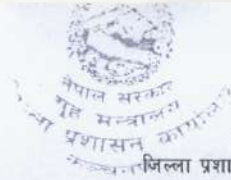 नेपाल सरकार
गृह मन्त्रालय
प्रशासन कार्यालय
जिल्ला प्रशा